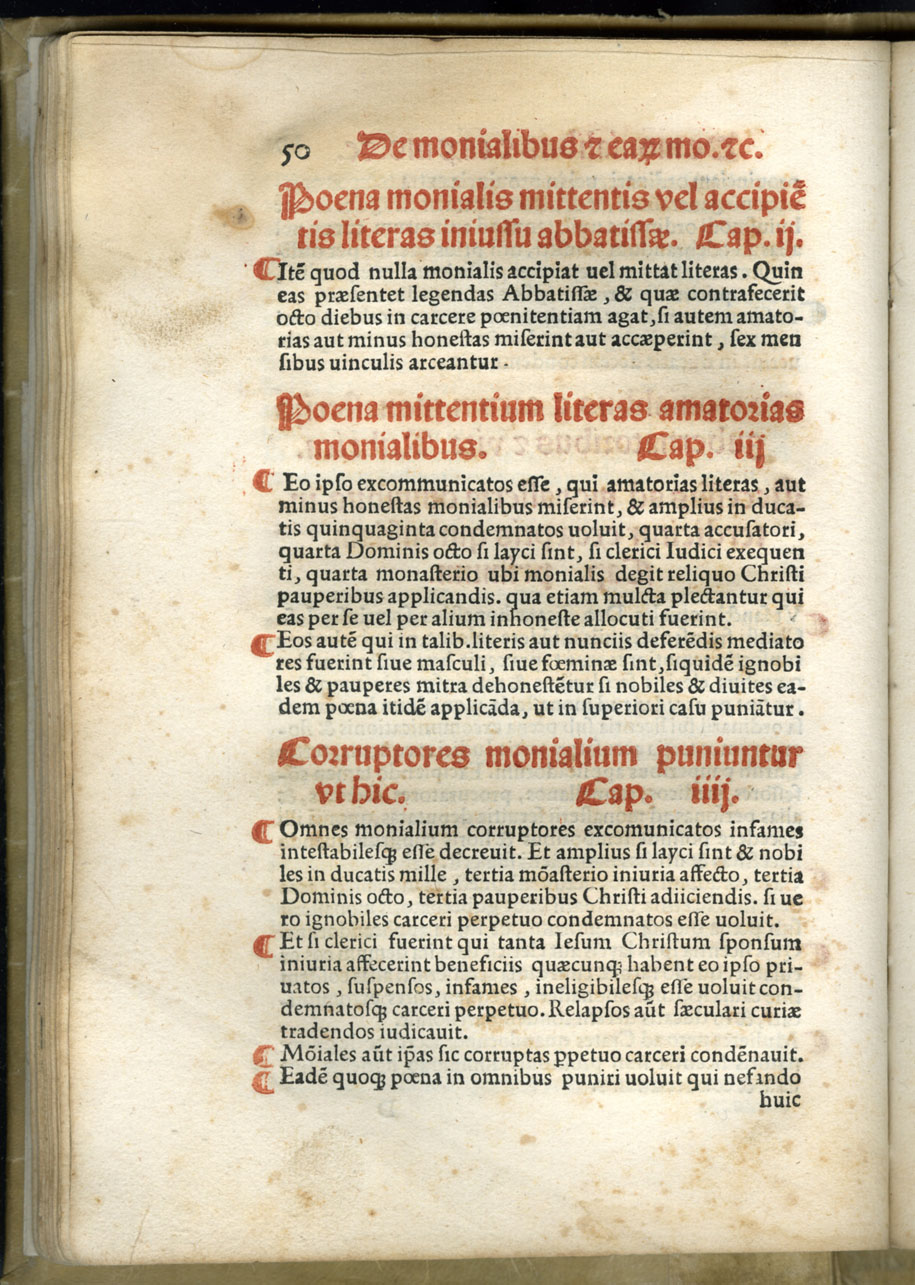 50 De monialibus ⁊ eaꝝ mo. ⁊c.
Poena monialis mittentis vel accipiē
tis literas iniussu abbatissæ. Cap. ij.
¶ Itē quod nulla monialis accipiat uel mittat literas. Quin
eas præsentet legendas Abbatissæ, & quæ contrafecerit
octo diebus in carcere pœnitentiam agat, si autem amato-
rias aut minus honestas miserint aut accæperint, sex men
sibus uinculis arceantur.
Poena mittentium literas amatorias
monialibus. Cap. iij
¶ Eo ipso excommunicatos esse, qui amatorias literas, aut
minus honestas monialibus miserint, & amplius in duca-
tis quinquaginta condemnatos uoluit, quarta accusatori,
quarta Dominis octo si layci sint, si clerici Iudici exequen
ti, quarta monasterio ubi monialis degit reliquo Christi
pauperibus applicandis. qua etiam mulcta plectantur qui
eas per se uel per alium inhoneste allocuti fuerint.
¶ Eos autē qui in talib. literis aut nunciis deferēdis mediato
res fuerint siue masculi, siue fœminæ sint, siquidē ignobi
les & pauperes mitra dehonestētur si nobiles & diuites ea-
dem pœna itidē applicāda, ut in superiori casu puniātur.
Corruptores monialium puniuntur
vt hic. Cap. iiij.
¶ Omnes monialium corruptores excomunicatos infames
intestabilesqꝫ esse decreuit. Et amplius si layci sint & nobi
les in ducatis mille, tertia mōasterio iniuria affecto, tertia
Dominis octo, tertia pauperibus Christi adiiciendis. si ue
ro ignobiles carceri perpetuo condemnatos esse uoluit.
¶ Et si clerici fuerint qui tanta Iesum Christum sponsum
iniuria affecerint beneficiis quæcunqꝫ habent eo ipso pri-
uatos, suspensos, infames, ineligibilesqꝫ esse uoluit con-
demnatosqꝫ carceri perpetuo. Relapsos aūt sæculari curiæ
tradendos iudicauit.
¶ Mōiales aūt ip̄as sic corruptas ꝑpetuo carceri condēnauit.
¶ Eadē quoqꝫ pœna in omnibus puniri uoluit qui nefando
huic